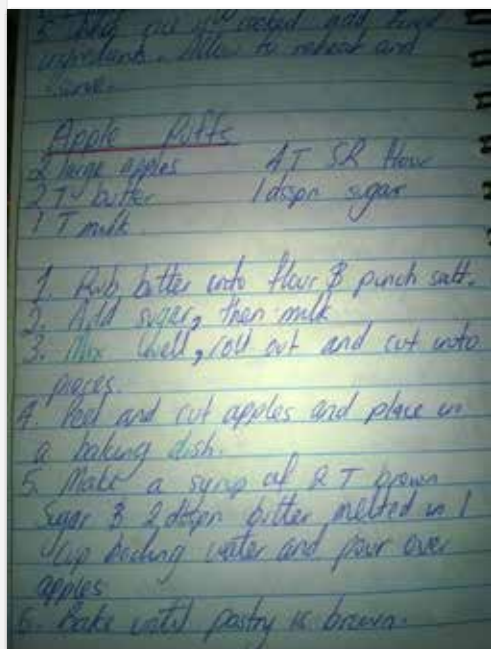 ingredients. Allow to reheat and
serve.
Apple Puffs
2 large apples 4T SR flour
2 T butter 1 dspn sugar
1 T milk.
1. Rub butter into flour & pinch salt.
2. Add sugar, then milk
3. Mix well, roll out and cut into
pieces.
4. Peel and cut apples and place in
a baking dish.
5. Make a syrup of 2 T brown
Sugar & 2 dspn butter melted in 1
cup boiling water and pour over
apples
6. Bake until pastry is brown.